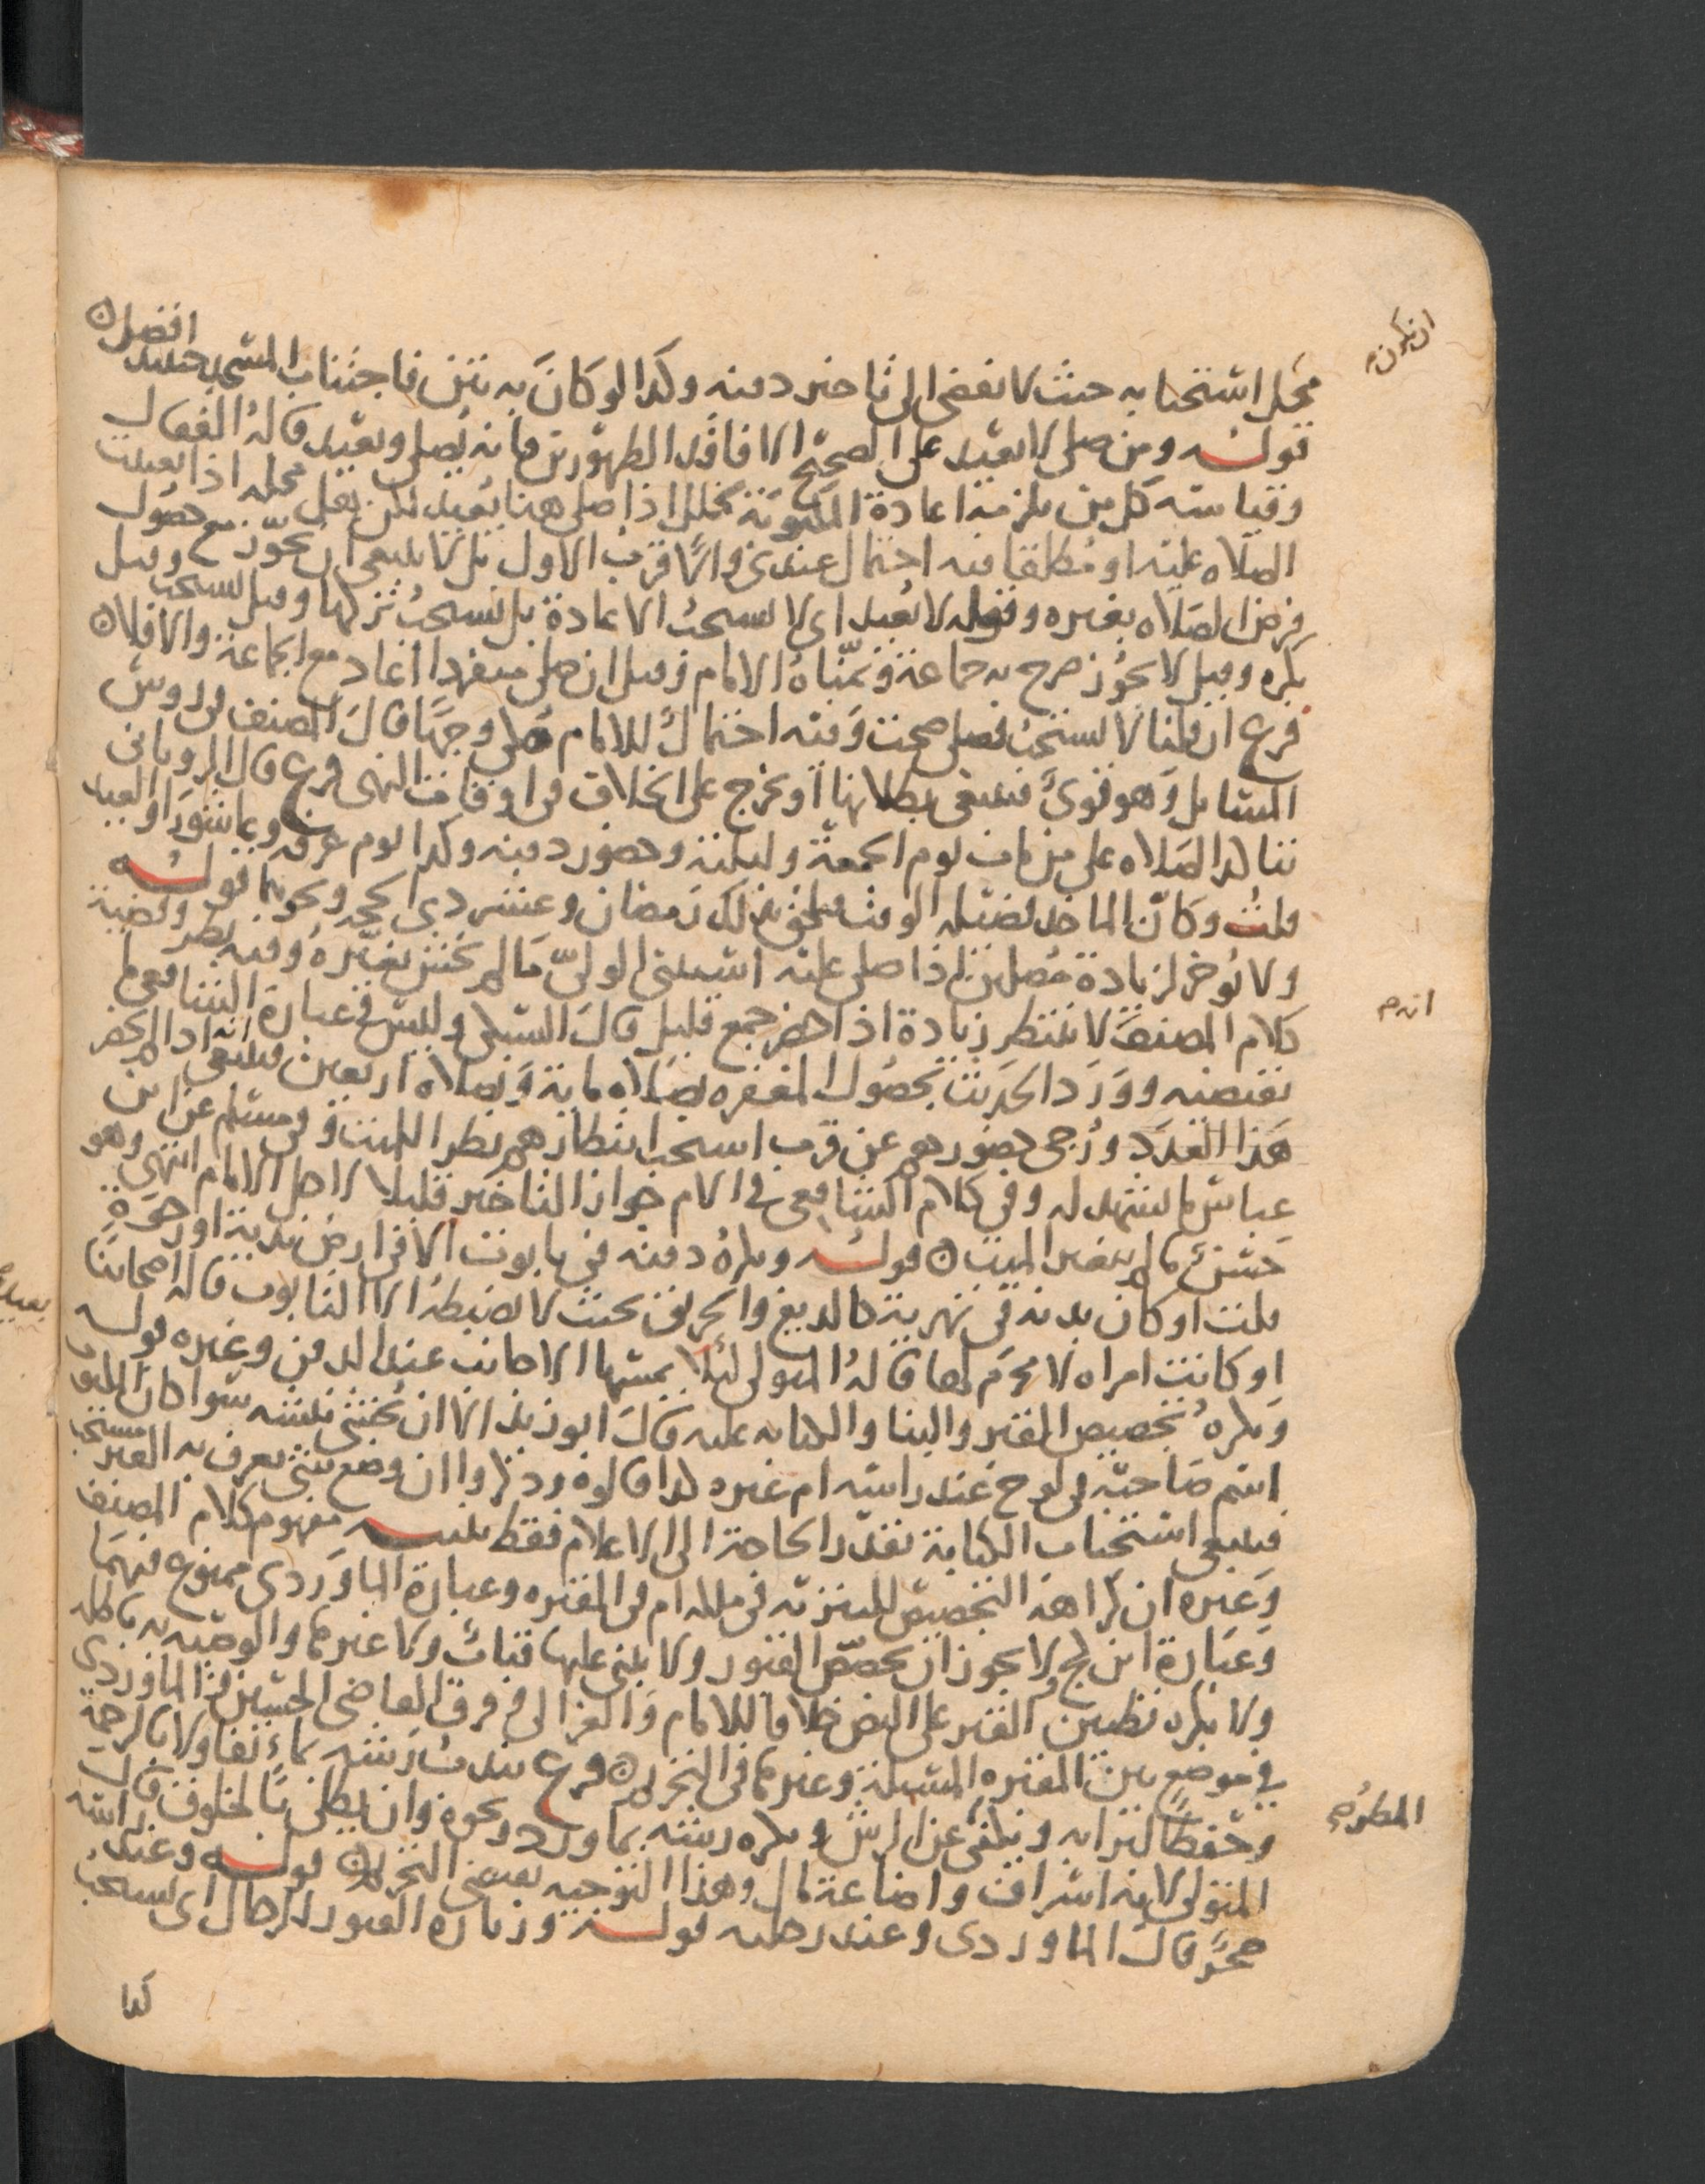 ان يكون
محل استحبابه حيث لا يفضي الى تاخير دفنه وكذا لو كان به نتن فاجتناب المسجد حينئذ افضل
قوله ومن صلى لا يعيد على الصحيح الا فاقد الطهورين فانه يصلي ويعيد قاله القفال
وقياسه كل من يلزمه اعادة المكتوبة لخلل اذا صلى هنا يعيد لكن هل محله اذا تعينت
الصلاه عليه او مطلقا فيه احتمال عندي والاقرب الاول بل لا ينبغي ان يجوز مع حصول
فرض الصلاه بغيره وقوله لا يعيد اى لا يستحب الاعادة بل يستحب تركها وقيل يستحب وقيل
يكره وقيل لا يجوز صرح به جماعة وتمناه الامام وقيل ان صلى منفردا اعاد مع الجماعة والا فلا
فرع ان قلنا لا يستحب فصلى صحت وفيه احتمال للامام وجها قال المصنف في روس
المسايل وهو قوي فينبغي بطلانها او تخرج على الخلاف في اوقات النهى فرع قال الروياني
تتاكد الصلاه على من مات يوم الجمعة وليلته وحضور دفنه وكذا يوم عرفه وعاشورا والعيد
قلت وكان الماخذ فضيله الوقت فيلحق بذلك رمضان وعشر ذي الحجه ونحوهما قوله
ولا يؤخر لزيادة مصلين اذا صلى عليه استثنى الولي ما لم يخش تغيره وفيه نظر وقضية
كلام المصنف لا ينتظر زيادة اذا حضر جمع قليل قال السبكي وليس في عبارة الشافعي ما
انه
يقتضيه وورد الحديث بحصول المغفره بصلاه ماية وبصلاه اربعين فينبغي انه اذا لم يحضر
هذا العدد ورجى حضورهم عن قرب استحب انتظارهم نظرا للميت وفي مسلم عن ابن
عباس ما يشهد له وفي كلام الشافعي في الام جواز التاخير قليلا لاجل الامام انتهى وهو
حسن ما لم يتغير الميت قوله ويكره دفنه في تابوت الا في ارض ندية او رخوة
قلت او كان بدنه في تهرية كاللديغ والحريق بحيث لا يضبطه الا التابوت قاله اصحابنا
او كانت امراه لا محرم لها قاله المتولي لئلا يمسها الاجانب عند الدفن وغيره قوله
ويكره تجصيص القبر والبنا والكتابه عليه قال ابو زيد الا ان يخشى نبشه سوا كان المكتوب
اسم صاحبه في لوح عند راسه ام غيره كذا قالوه وذكروا ان وضع شي يعرف به القبر مستحب
فينبغي استحباب الكتابة بقدر الحاجة الى الاعلام فقط تنبيه مفهوم كلام المصنف
وغيره ان كراهة التجصيص للتنزيه في ملكه ام في المقبره وعبارة الماوردي ممنوع فيهما
وعبارة ابن كج ولا يجوز ان تجصص القبور ولا يبنى عليها قباب ولا غيرها والوصيه به باطله
ولا يكره تطيين القبر على النص خلافا للامام والغزالي وفرق القاضي الحسين والماوردي
في موضع بين المقبره المسبلة وغيرها في التحريم فرع يندب رشه بماء تفاولا بالرحمة
المطر
وحفظا لترابه ويكفي عن الرش ويكره رشه بماورد ونحوه وان يطلى بالخلوق قال
المتولي لانه اسراف واضاعة مال وهذا التوجيه يقتضي التحريم قوله وعند راسه
حجر قال الماوردي وعند رجليه قوله وزيارة القبور للرجال اي يستحب
كذا